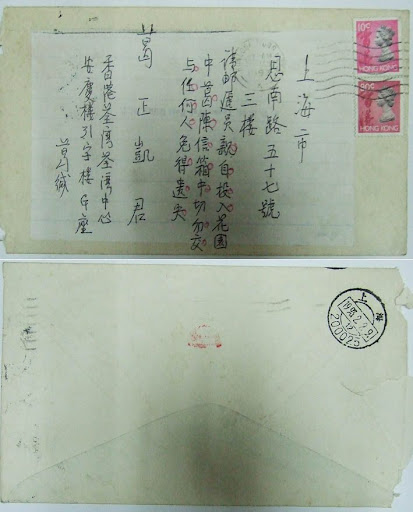 上海市
思南路五十七號
三樓
請郵遞員親自投入花園
中葛陳信箱中切勿交
与任何人免得遺失
葛正凱君
香港荃湾荃湾中心
安慶樓 字樓G座
緘
HONG KONG
HONG KONG
上海
200025